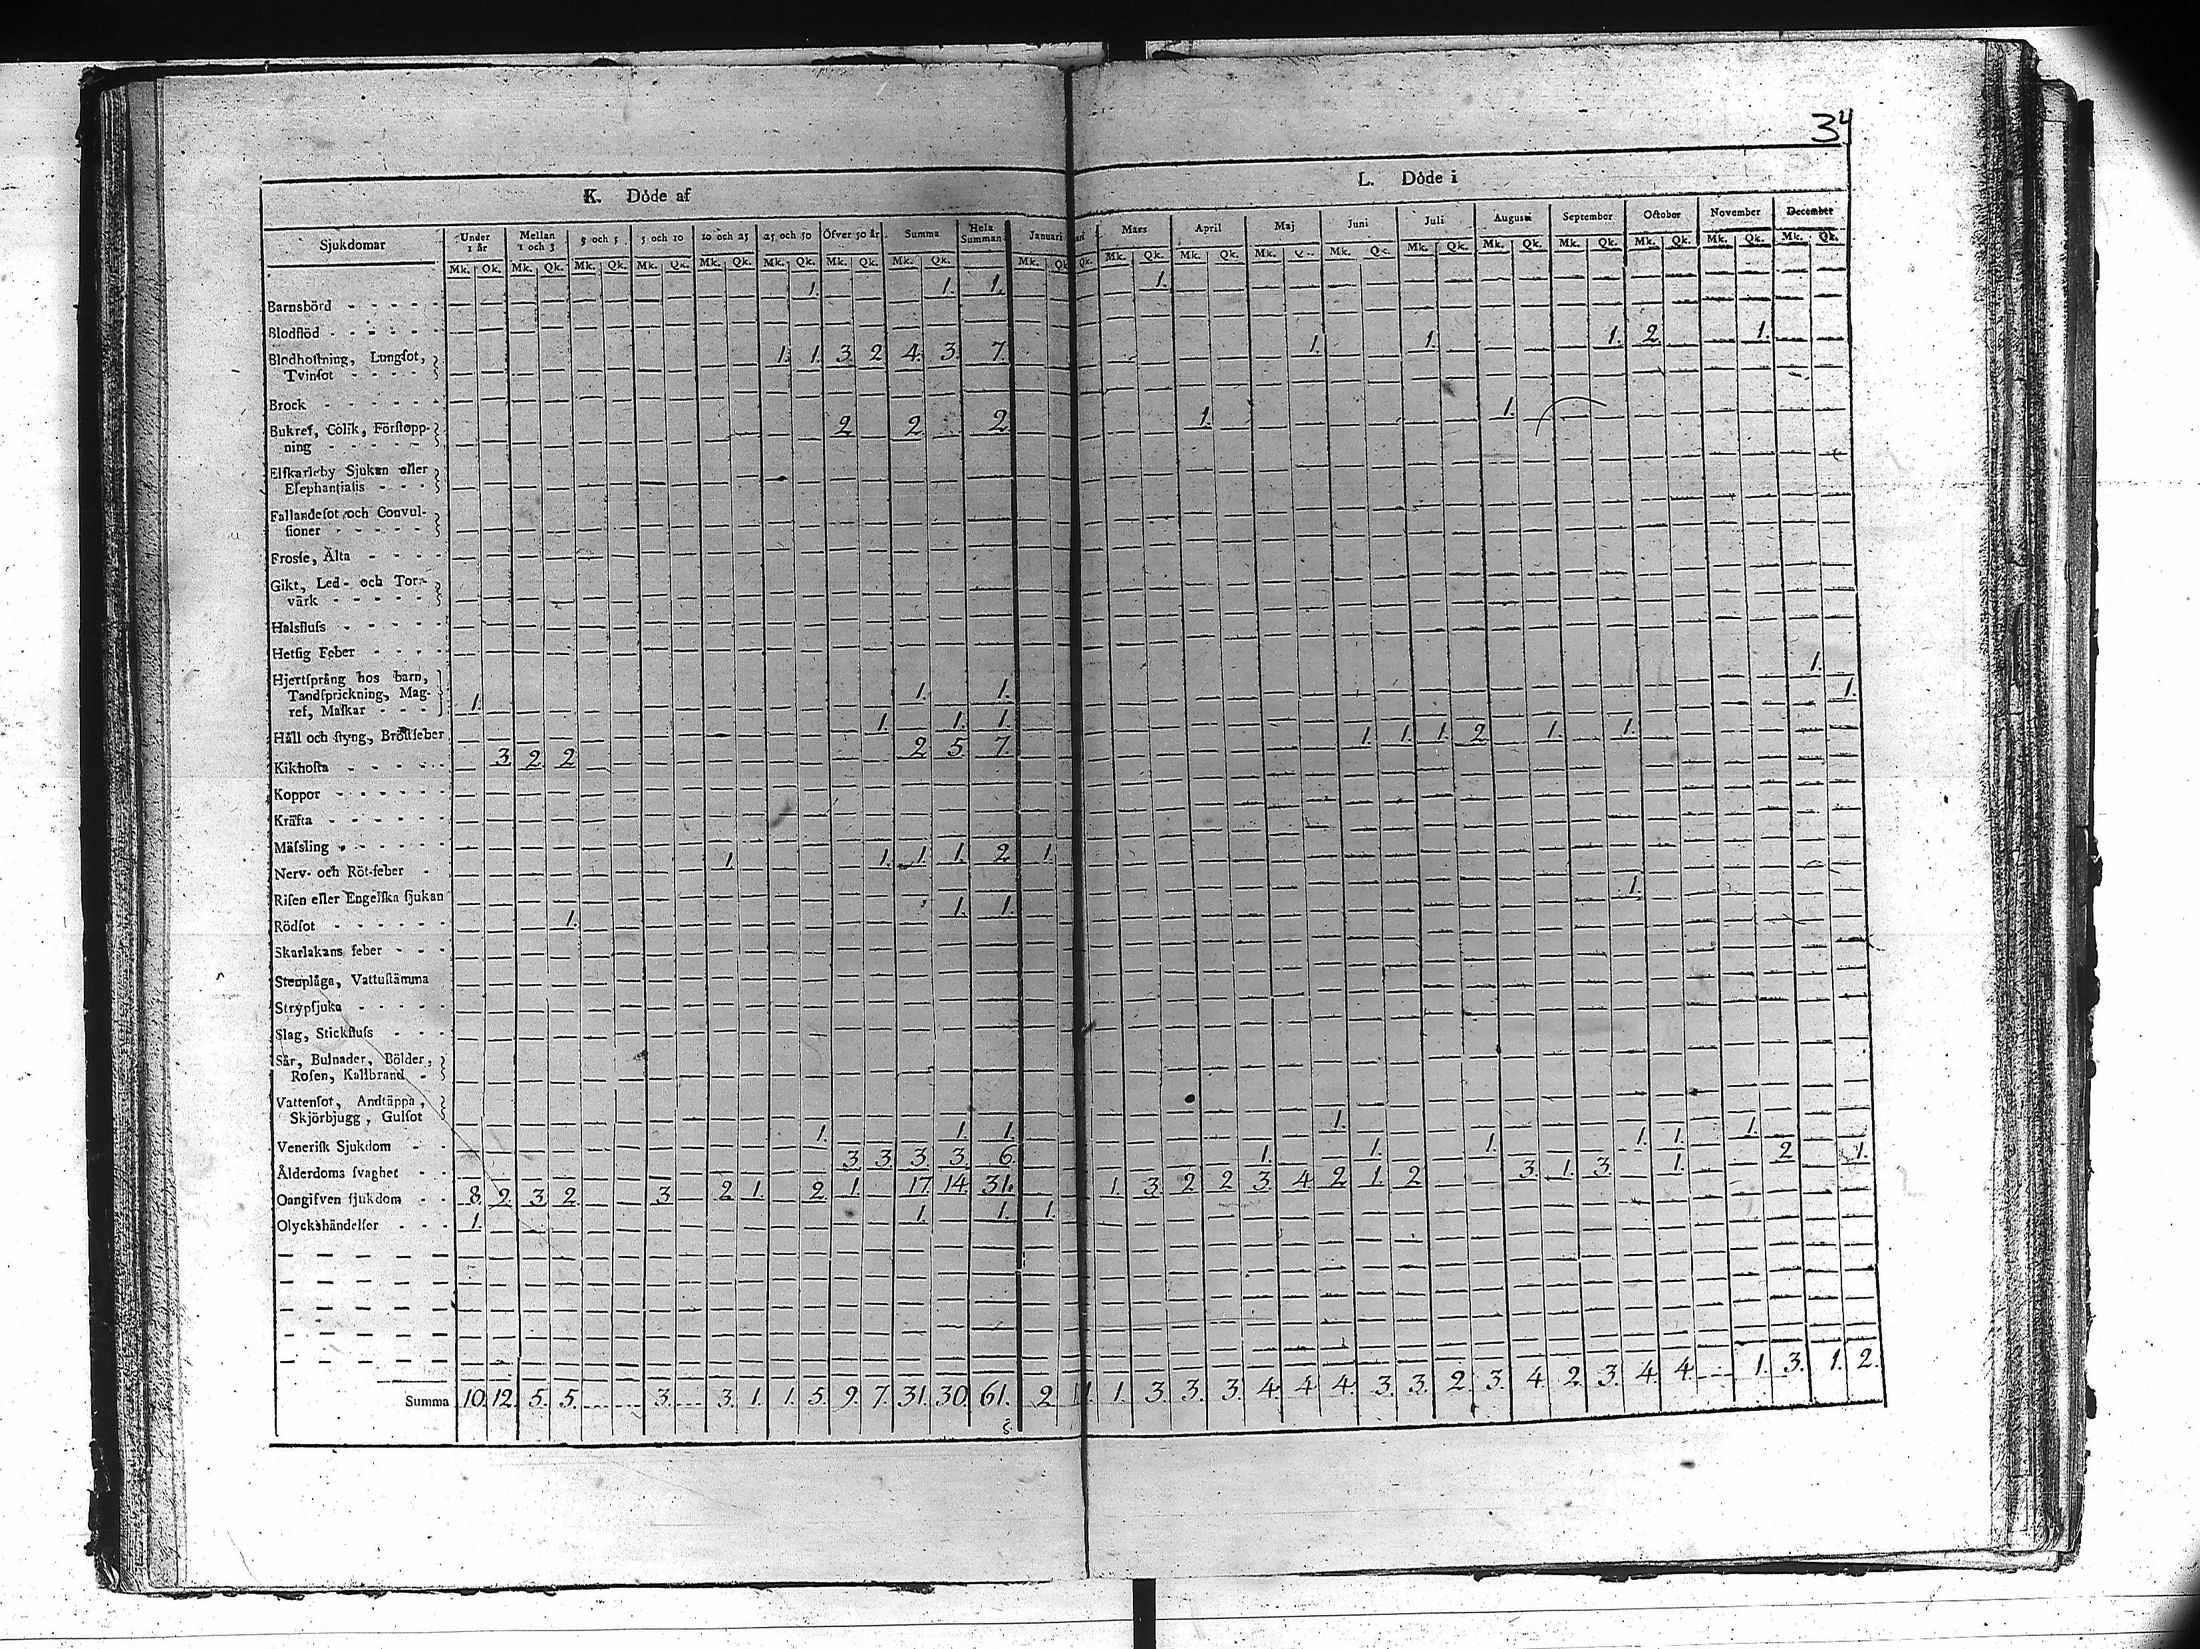 34
K. Döde af
L. Döde i
Sjukdomar Under 1 år Mellan 1 och 3 3 och 5 5 och 10 10 och 25 25 och 50 Öfver 50 år Summa Hela Summan Januari Mars April Maj Juni Juli Augusti September October November December
Mk. Qk. Mk. Qk. Mk. Qk. Mk. Qk. Mk. Qk. Mk. Qk. Mk. Qk. Mk. Qk. Mk. Qk. Qk. Mk. Qk. Mk. Qk. Mk. Mk. Mk. Qk. Mk. Qk. Mk. Qk. Mk. Qk. Mk. Qk. Mk. Qk.
Barnsbörd - - - - - 1. 1. 1. 1.
Blodflöd - - - - - -
Blodhostning, Lungsot, 1. 1. 3. 2 4. 3. 7. 1. 1. 1. 2. 1.
Tvinsot - - - -
Brock - - - - - -
Bukref, Colik, Förstopp- 2 2. 2. 1. 1.
ning - - - - -
Elfkarleby Sjukan eller
Elephantiasis - - -
Fallandesot och Convul-
sioner - - - - -
Frosse, Älta - - - -
Gikt, Led- och Tor-
värk - - - - -
Halsfluss - - - - -
Hetsig Feber - - - -
Hjertsprång hos barn,
Tandsprickning, Mag-
ref, Maskar - - - 1. 1. 1. 1.
Håll och styng, Bröstfeber 1. 1. 1. 1.
Kikhosta - - - - - 3. 2. 2 2 5. 7. 1. 1. 1. 2. 1. 1.
Koppor - - - - - -
Kräfta - - - - - -
Mässling - - - - - -
Nerv- och Röt-feber - 1. 1. 1. 1. 2 1.
Risen eller Engelska sjukan
Rödsot - - - - - - 1. 1. 1. 1.
Skarlakans feber - - -
Stenplåga, Vattustämma
Strypsjuka - - - - -
Slag, Stickfluss - - -
Sår, Bulnader, Bölder,
Rosen, Kallbrand -
Vattensot, Andtäppa,
Skjörbjugg, Gulsot
Venerisk Sjukdom - - 1. 1. 1. 1.
Ålderdoms svaghet - - 3. 3. 3. 3. 6. 1. 1. 1. 1. 1. 1.
Oangifven sjukdom - - 8. 2. 3. 2. 3. 2. 1. 2. 1. 17. 14. 31. 1. 3. 2 2 3. 4. 2 1. 2 3. 1. 3. 1. 2. 1.
Olyckshändelser - - - 1. 1. 1. 1.
Summa 10. 12. 5. 5. 3. 3. 1. 1. 5. 9. 7. 31. 30. 61. 2 1. 3. 3. 3. 4. 4. 4. 3. 3. 2. 3. 4. 2. 3. 4. 4. 1. 3. 1. 2.